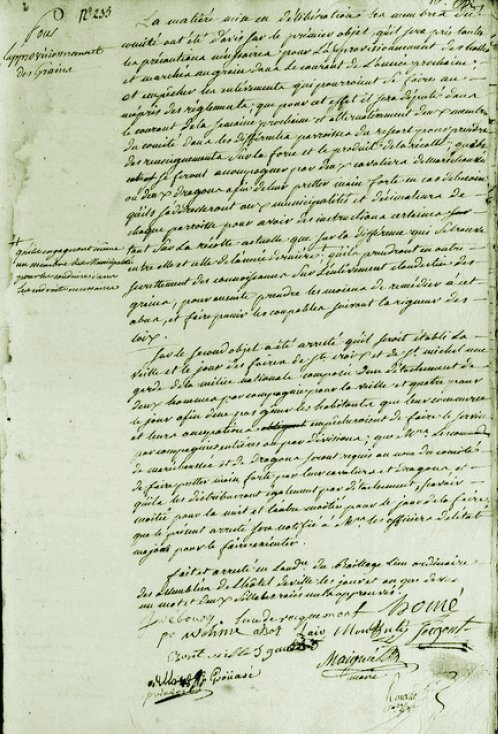 N.° 235
Pour
l'approvisionnement
des Grains
La matiére mise en déliberation les membres du
comité ont été d'avis sur le premier objet, qu'il sera pris toutes
les précautions nécessaires pour l'approvisionnement des halles
et marchés en grains dans le courant de l'année prochaine;
et empêcher les enlevements qui pourroient se faire au
mépris des réglements; que pour cet effet il sera député dans
le courant de la semaine prochaine et alternativement deux membres
du comité dans les différentes paroisses du ressort pour prendre
des renseignements sur la force et le produit de la récolte; qu'ils
se feront accompagner par deux cavaliers de maréchaussée
ou deux dragons afin de leur pretter main forte en cas de besoin
qu'ils s'adresseront aux municipalités et décimateurs de
chaque paroisse pour avoir des instructions certaines
tant sur la récolte actuelle que sur la différence qui se trouve
entre elle et celle de l'année derniere; qu'ils prendront en outre
secrettement des connoissances sur l'enlevement clandestin des
grains, pour ensuite prendre les moiens de remédier à cet
abus, et faire punir les coupables suivant la rigueur des
loix.
qu'ils engageront même
un membre des Municipalités
pour les conduire dans
les endroits necessaires
Sur le second objet a été arresté qu'il seroit établi la
veille et le jour des foires de S.te croix et de S.t michel une
garde de la milice nationale composée d'un détachement de
deux hommes par compagnie pour la veille et quatre pour
le jour afin de ne pas gêner les habitants que leur commerce
et leurs occupations empêcheroient de faire le service
par compagnies entieres ou par divisions; que M.rs les commandants
de maréchaussée et de dragons seront requis au nom du comité
de faire pretter main forte par leurs cavaliers et dragons, et
qu'ils les distribueront également par détachement, sçavoir
moitié pour la nuit et l'autre moitié pour le jour de la foire
que le présent arresté sera notifié à M.rs les officiers de l'état
major pour le faire exécuter.
Fait et arresté en la chambre du Bailliage lieu ordinaire
des assemblées de l'hôtel de ville les jour et an que dessus
un mot et deux sillabes raiés nuls approuvés.
maire